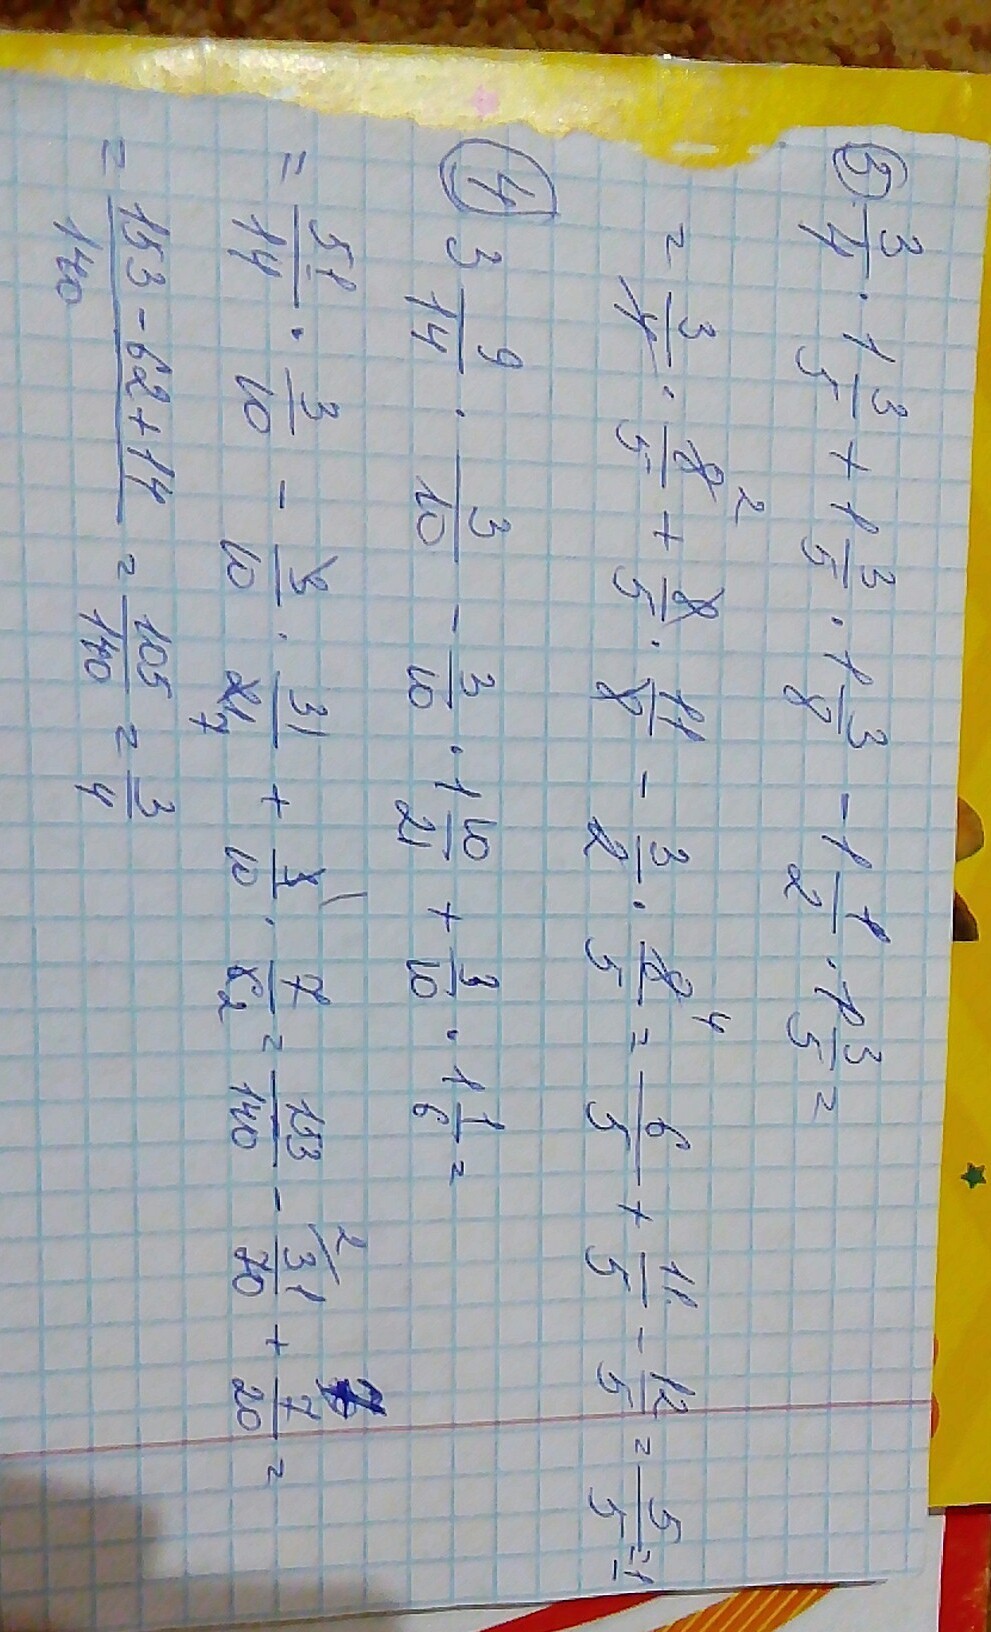 ③ 3/4 · 1 3/5 + 1 3/5 · 1 3/8 - 1 1/2 · 1 3/5 =
= 3/4 · 8/5 2 + 8/5 · 11/8 - 3/2 · 8/5 4 = 6/5 + 11/5 - 12/5 = 5/5 = 1
④ 3 9/14 · 3/10 - 3/10 · 1 10/21 + 3/10 · 1 1/6 =
= 51/14 · 3/10 - 3/10 · 31/21 7 + 3/10 1 · 7/6 2 = 153/140 - 31/70 2 + 7/20 =
= 153 - 62 + 14/140 = 105/140 = 3/4